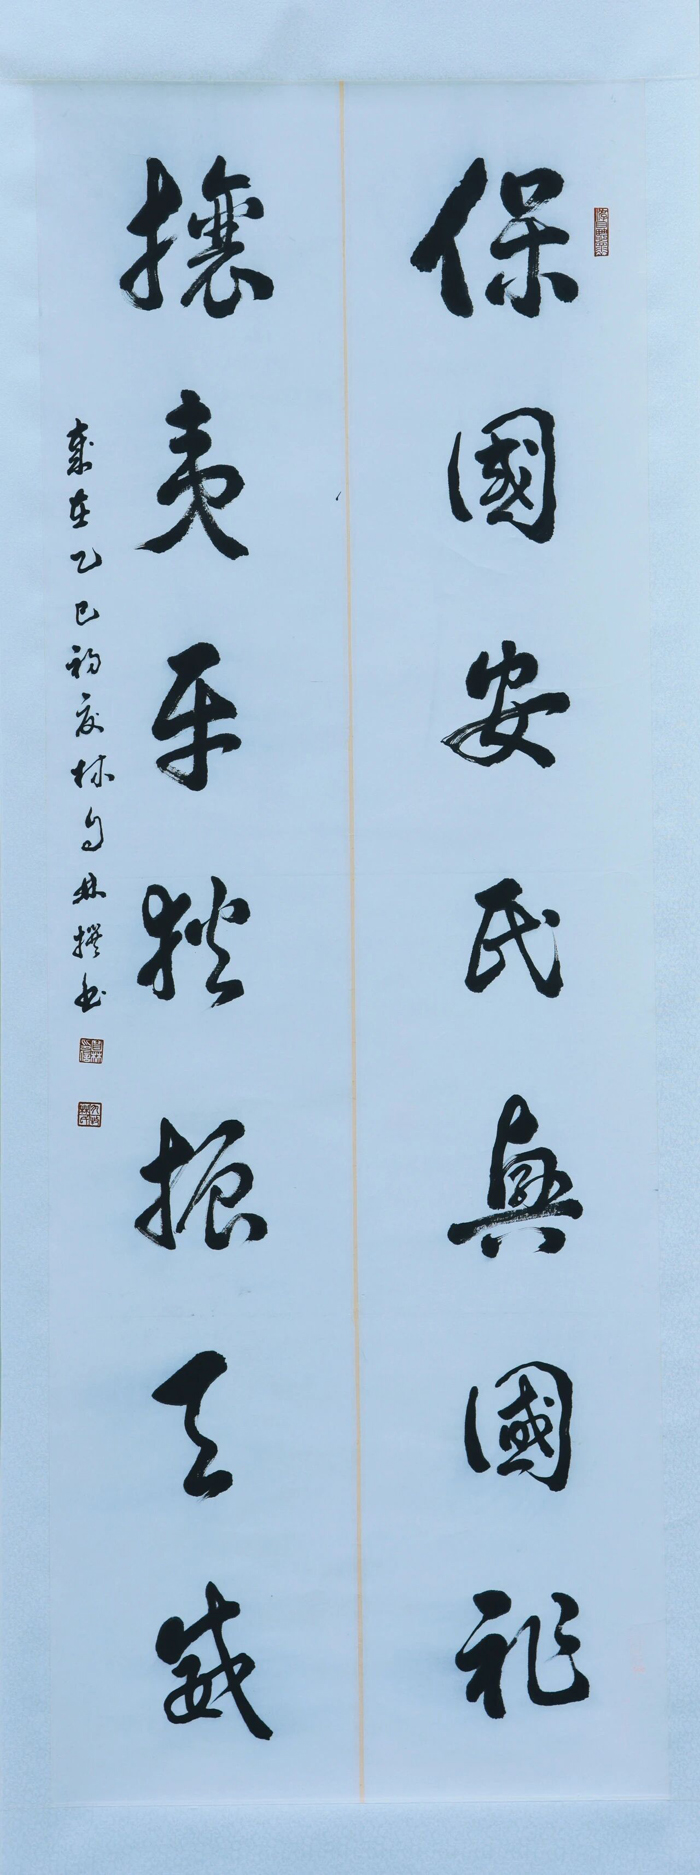 保國安民興國祚
攘夷平狄振天威
歲在乙巳初夏林自林撰書